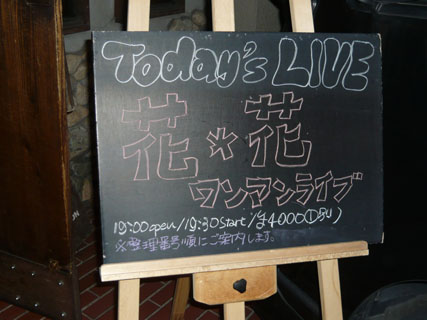 Today's LIVE
花*花
ワンマンライブ
19:00 open/19:30 start/¥4000(1D別)
※整理番号順にご案内します。